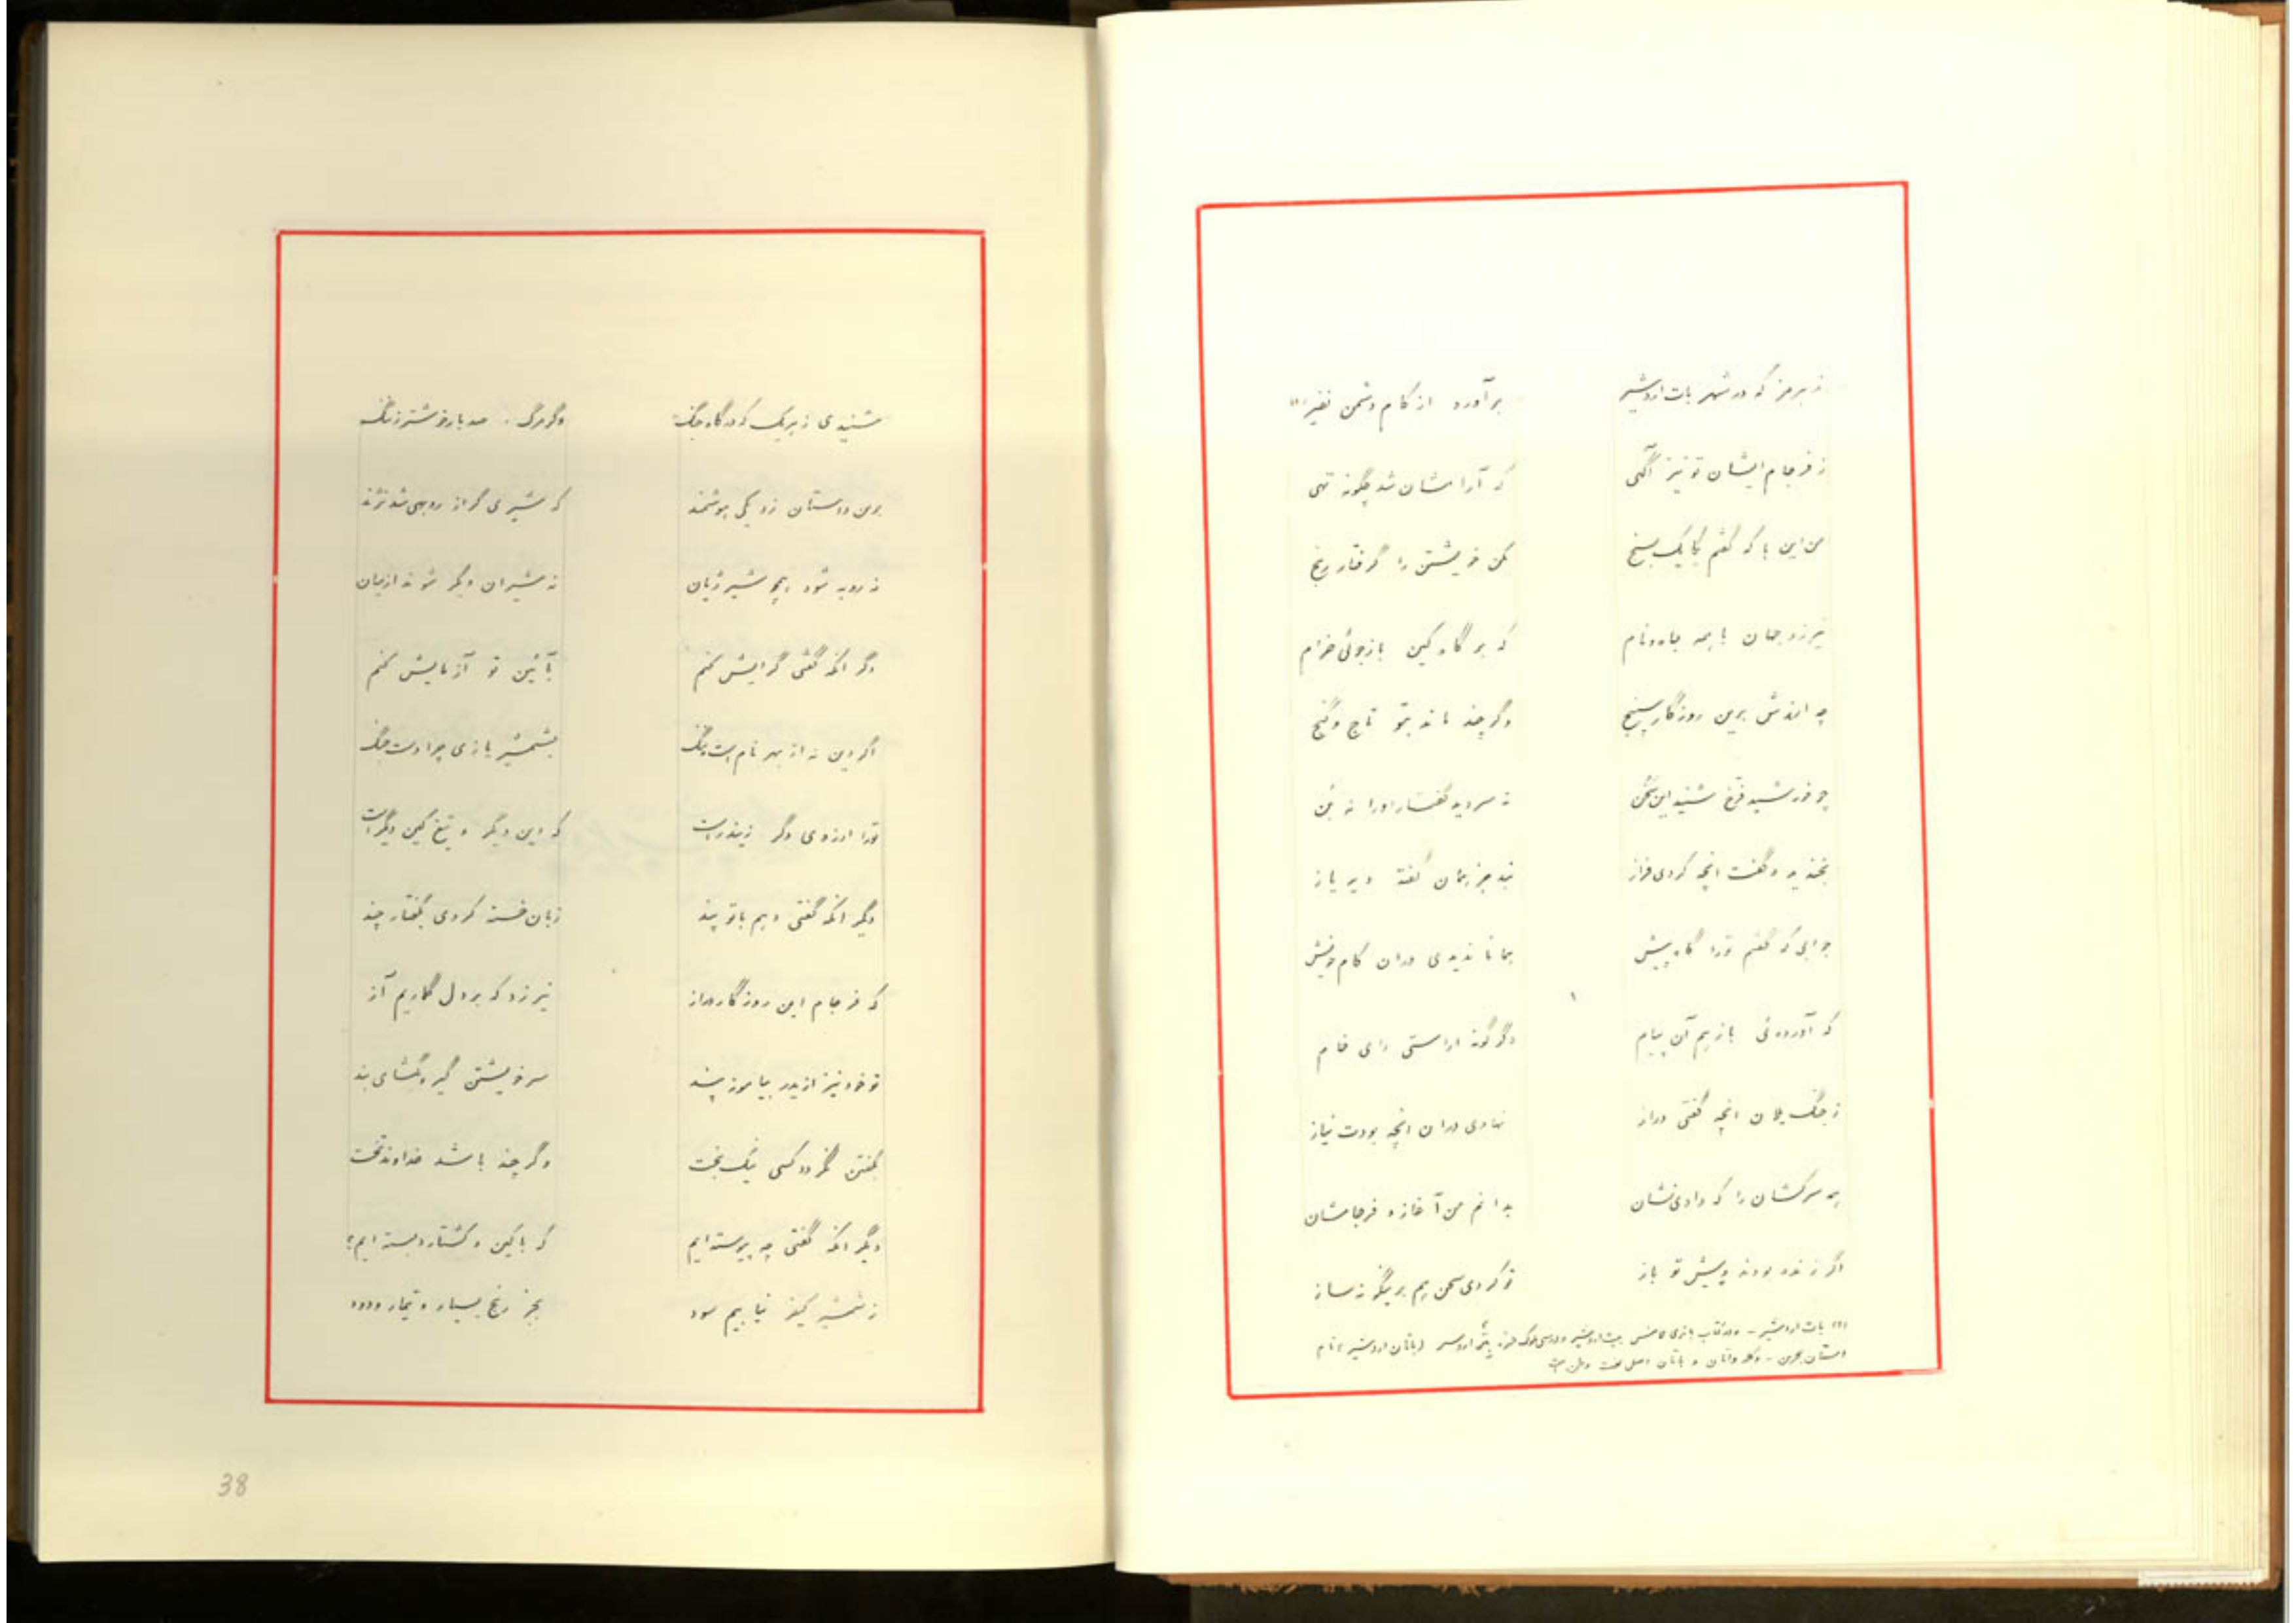 ز هرمز که در شهر بات اردشیر برآورد از کام دشمن نفیر (۱)
ز فرجام ایشان تو نیز آگهی که آرامشان شد چگونه تهی
من این با که گفتم یکایک بسنج مکن خویشتن را گرفتار رنج
نیرزد جهان با همه جاه و نام که بر گاه کین بازجوئی خرام
چه اندیش برین روزگار سپنج وگر چند ماند بتو تاج و گنج
چو خورشید فرخ شنید این سخن نه سر دید گفتار او را نه بن
بخندید و گفت انچه کردی فراز نبد جز همان گفته دیریاز
جوابی که گفتم ترا گاه پیش همانا ندیدی دران کام خویش
که آورده ئی بازهم آن پیام دگرگونه اراستی رای خام
ز جنگ یلان انچه گفتی دراز نهادی دران انچه بودت نیاز
همه سرکشان را که دادی نشان بدانم من آغاز و فرجامشان
اگر زنده بودند و پیش تو باز تو کردی سخن هم برینگونه ساز
(۱) بات اردشیر - و در کتاب
شنیدی ز هر یک که در گاه جنگ وگر مرگ صد بار خوشتر ز ننگ
برین داستان زد یکی هوشمند که شیری گر از روبهی شد نژند
نه روبه شود همچو شیر ژیان نه شیران دگر شوند از میان
دگر انکه گفتی گرایش کنم بآئین تو آزمایش کنم
اگر دین نه از بهر نام است و ننگ بشمشیر یازی چرا دست جنگ
ترا ارزوی دگر زیندر است که این دیگر و تیغ کین دیگر است
دیگر انکه گفتی دهم باتو پند زبان خسته کردی بگفتار چند
که فرجام این روزگار دراز نیرزد که بر دل گماریم آز
تو خود نیز ایدر بیاموز پند سر خویشتن گیر و بگشای بند
بگفتن نگردد کسی نیک بخت وگر چند باشد خداوند تخت
دیگر انکه گفتی چه پیوسته ایم که با کین و کشتار دبسته ایم؟
ز شمشیر کینه نیابیم سود بجز رنج بسیار و تیمار و دود
38